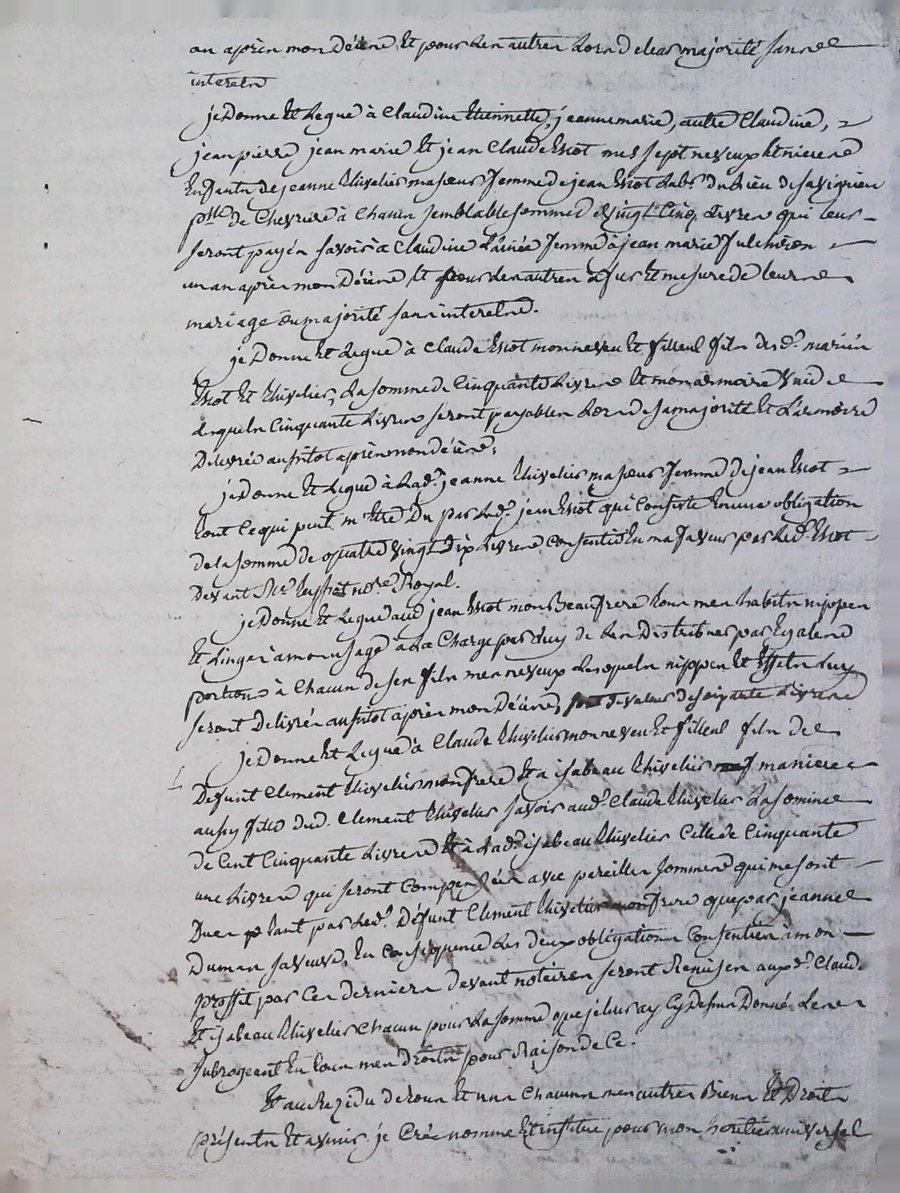 an après mon Décéd, Et pour Les autres Lors de leur majorité sans
interests
je Donne Et Legue à Claudine Etiennette, jeanne marie, autre Claudine,
jean pierre jean marie Et jean Claude mes sept neveux Et nieces
Enfants de jeanne ma sœur femme de jean Labr. du Lieu de savigneu
psse de Chevriere à Chacun semblable somme de vingt Cinq Livres qui leurs
seront payés savoir à Claudine L'ainée femme à jean marie
un an après mon Décéd, Et pour Les autres a fur Et mesure de leurs
mariage ou majorité sans interests.
je Donne Et Legue à Claude mon neveu Et filleul fils desd. mariés
Et La somme de Cinquante Livres Et mon armoire vuide
Lesquels Cinquante Livres seront payables Lors de sa majorité Et L'armoire
Delivrée aussitot après mon décéd.
je donne Et Legue à Lad. jeanne ma sœur femme de jean
tout Ce qui peut m'être Du par Led. jean qui Consiste En une obligation
de la somme de quatre vingt Dix Livres Consentie En ma faveur par Led.
Devant Me nore Royal.
je Donne Et Legue aud jean mon Beaufrere tous mes habits nippes
Et Linge à mon usage à La Charge par Luy de Les Distribuer par Egales
portions à Chacun de ses fils mes neveux Lesquels nippes Et Effets Luy
seront Delivrés aussitot après mon Décéd, de valeur de soixante Livres
je Donne Et Legue à Claude mon neveu Et filleul fils de
Defunt Clement mon frere Et à isabeau ma niece
aussy fille dud. Clement savoir aud. Claude La somme
de Cent Cinquante Livres Et à Lad. isabeau Celle de Cinquante
une Livres qui seront Compensées avec pareilles sommes qui me sont
Dues tant par Led. Défunt Clement mon frere que par jeanne
Dumas sa veuve, En Consequence Les deux obligations Consenties à mon
proffit par Ces derniers devant notaires seront Remises auxd. Claude
Et isabeau Chacun pour La somme que je leur ay Cy Dessus Donné Les
subrogeant En tous mes droits pour Raison de Ce.
Et au Rezidu de tous Et uns Chacuns mes autres Biens Et Droits
présents Et avenir je Crée nomme Et institue pour mon heritier universel